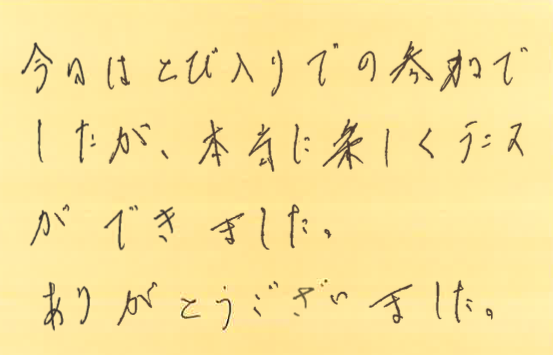 今日はとび入りでの参加で
したが、本当に楽しくテニス
ができました。
ありがとうございました。